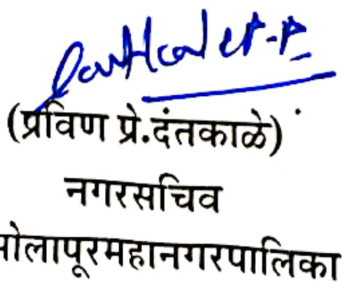 (प्रविण प्रे.दंतकाळे)
नगरसचिव
सोलापूरमहानगरपालिका